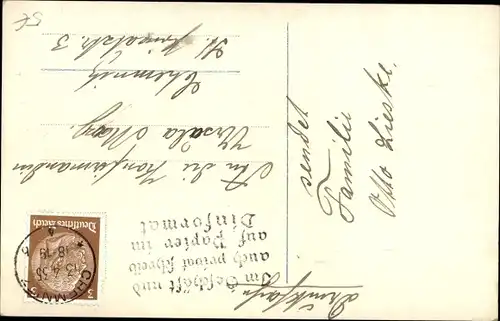 Drucksache
Im Geschäft und
auch privat schreib
auf Papier im
Dinformat
Deutsches Reich
3
CHEMNITZ
13.4.35
18-19
An die Konfirmandin
Ursula May,
Chemnitz
sendet
Familie
Otto Lieske.